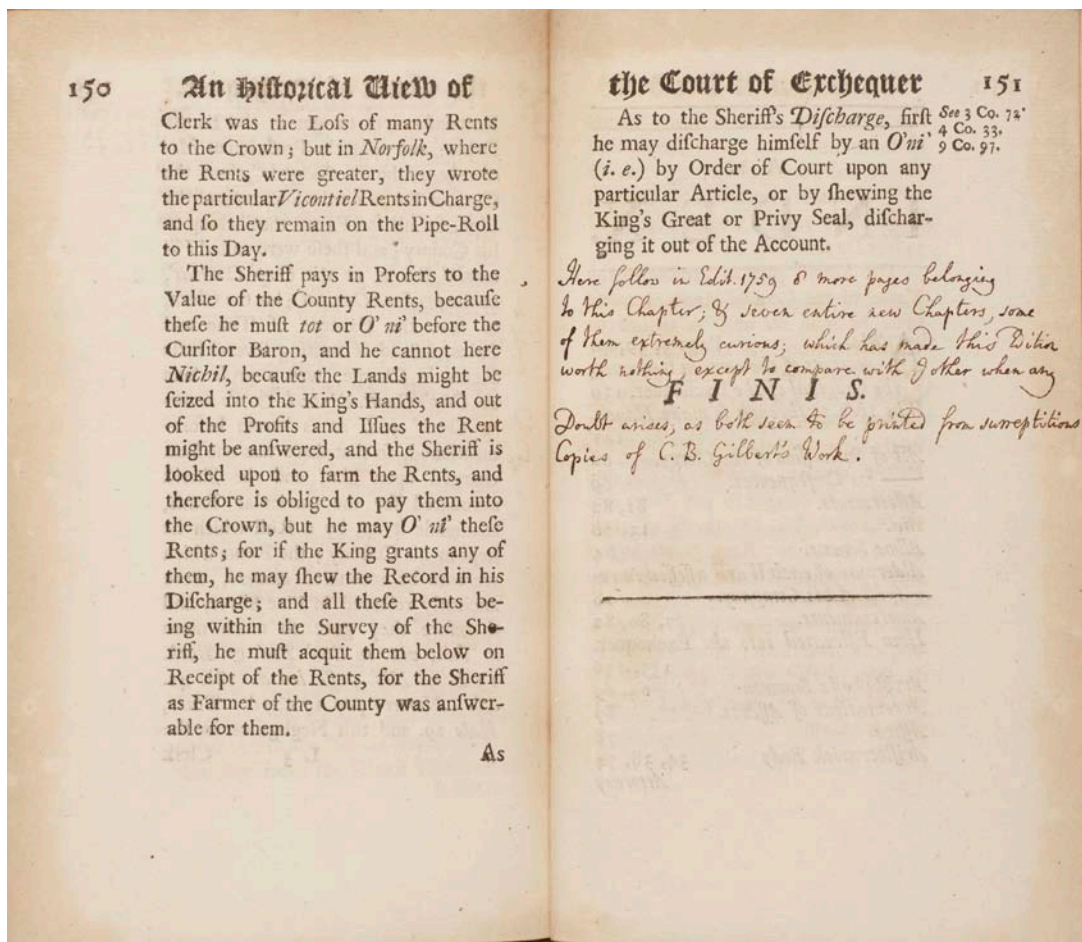 150 An Hiſtorical View of
Clerk was the Loſs of many Rents
to the Crown; but in Norfolk, where
the Rents were greater, they wrote
the particular Vicontiel Rents in Charge,
and ſo they remain on the Pipe-Roll
to this Day.
The Sheriff pays in Profers to the
Value of the County Rents, becauſe
theſe he muſt tot or O' ni' before the
Curſitor Baron, and he cannot here
Nichil, becauſe the Lands might be
ſeized into the King's Hands, and out
of the Profits and Iſſues the Rent
might be anſwered, and the Sheriff is
looked upon to farm the Rents, and
therefore is obliged to pay them into
the Crown, but he may O' ni' theſe
Rents; for if the King grants any of
them, he may ſhew the Record in his
Diſcharge; and all theſe Rents be-
ing within the Survey of the She-
riff, he muſt acquit them below on
Receipt of the Rents, for the Sheriff
as Farmer of the County was anſwer-
able for them.
As
the Court of Exchequer 151
As to the Sheriff's Diſcharge, firſt
he may diſcharge himſelf by an O'ni'
(i. e.) by Order of Court upon any
particular Article, or by ſhewing the
King's Great or Privy Seal, diſchar-
ging it out of the Account.
See 3 Co. 72.
4 Co. 33.
9 Co. 97.
Here follow in Edit. 1759 8 more pages belonging
to this Chapter; & seven entire new Chapters, some
of them extremely curious; which has made this Edition
worth nothing, except to compare with ye other when any
FINIS.
Doubt arises, as both seem to be printed from surreptitious
Copies of C. B. Gilbert's Work.